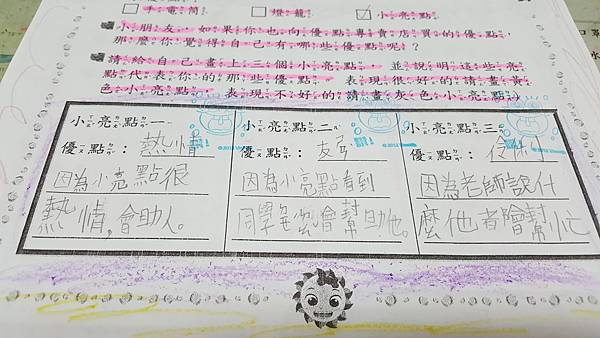 手電筒 燈籠 小亮點
小朋友,如果你也向優點專賣店買的優點,
那麼你覺得自己有哪些優點呢?
請給自己畫上三個小亮點,並說明這些亮
點代表你的那些優點?(表現很好的請畫黃
色小亮點,表現不好的請畫灰色小亮點)
小亮點一
優點:熱情
因為小亮點很
熱情,會助人。
小亮點二
優點:友
因為小亮點看到
同學 會幫助他。
小亮點三
優點:伶俐
因為老師說什
麼他都會幫忙